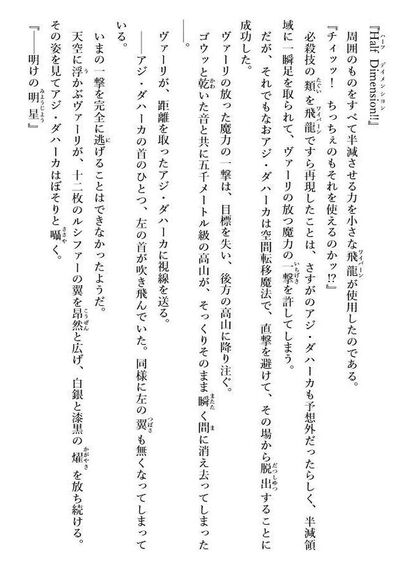 『Half Dimension!!』
周囲のものをすべて半減させる力を小さな飛龍が使用したのである。
『チィッッ！　ちっちぇのもそれを使えるのかッ!?』
必殺技の類を飛龍ですら再現したことは、さすがのアジ・ダハーカも予想外だったらしく、半減領
域に一瞬足を取られて、ヴァーリの放つ魔力の一撃を許してしまう。
だが、それでもなおアジ・ダハーカは空間転移魔法で、直撃を避けて、その場から脱出することに
成功した。
ヴァーリの放った魔力の一撃は、目標を失い、後方の高山に降り注ぐ。
ゴウッと乾いた音と共に五千メートル級の高山が、そっくりそのまま瞬く間に消え去ってしまった
――。
ヴァーリが、距離を取ったアジ・ダハーカに視線を送る。
――アジ・ダハーカの首のひとつ、左の首が吹き飛んでいた。同様に左の翼も無くなってしまって
いる。
いまの一撃を完全に逃げることはできなかったようだ。
天空に浮かぶヴァーリが、十二枚のルシファーの翼を昂然と広げ、白銀と漆黒の燿を放ち続ける。
その姿を見てアジ・ダハーカはぼそりと囁く。
『――明けの明星』